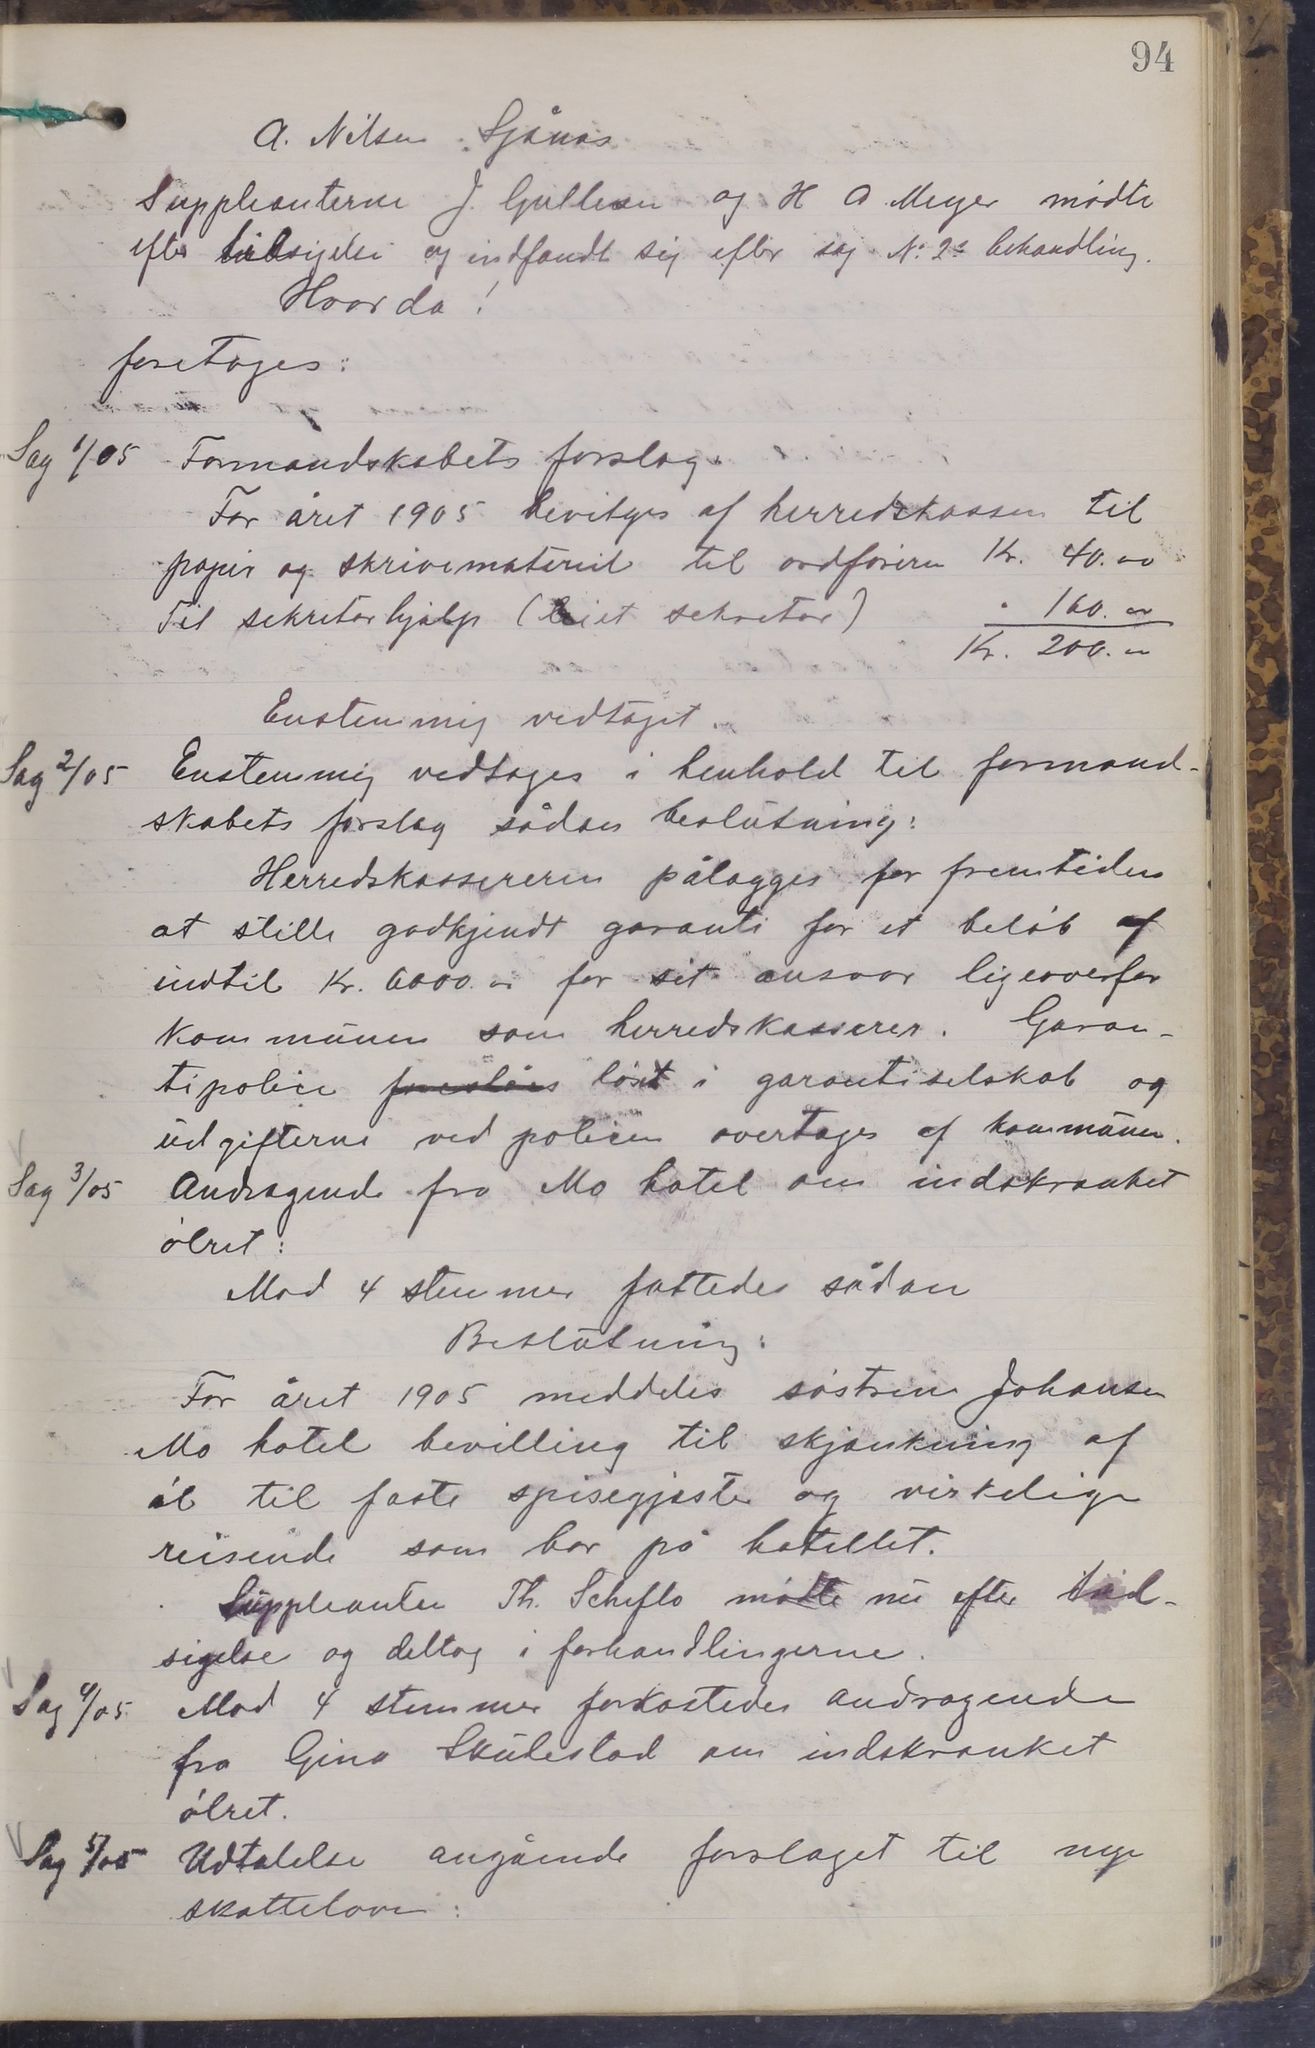 94
A. Nilsen Sjånæs
Suppleanterne J. Gullesen og H A Meyer mødte
efter tilsigelse og indfandt sig efter sag No 2s behandling.
Hvorda!
foretoges:
Sag 1/05 Formandskabets forslag.
For året 1905 bevilges af herredskassen til
papir og skrivematerial til ordføreren Kr. 40.00
Til sekretærhjælp (leiet sekretær) " 160.00
Kr. 200.00
Enstemmig vedtaget.
Sag 2/05 Enstemmig vedtoges i henhold til formand-
skabets forslag sådan beslutning:
Herredskassereren pålægges for fremtiden
at stille godkjendt garanti for et beløb af
indtil Kr. 6000.00 for sit ansvar ligeoverfor
kommunen som herredskasserer. Garan-
tipolice foreslåes løst i garantiselskab og
udgifterne ved policen overtages af kommunen.
Sag 3/05 Andragende fra Mo hotel om indskrænket
ølret:
Mod 4 stemmer fattedes sådan
Beslutning:
For året 1905 meddeles søstrene Johansen
Mo hotel bevilling til skjænkning af
øl til faste spisegjæster og virkelige
reisende som bor på hotellet.
Suppleanten Th. Scheflo mødte nu efter tild-
sigelse og deltog i forhandlingerne.
Sag 4/05 Mod 4 stemmer forkastedes andragende
fra Gina Skulestad om indskrænket
ølret.
Sag 5/05 Udtalelse angående forslaget til nye
skattelove: